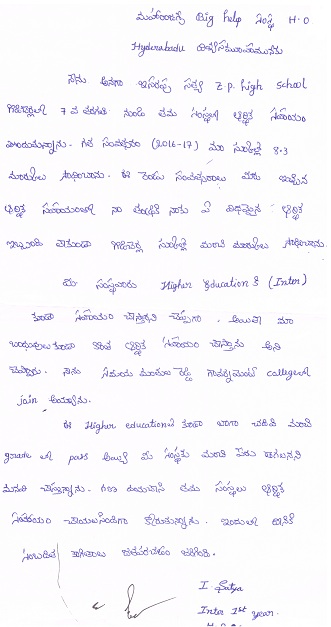 మహారాజశ్రీ Big help సంస్థ H.O
Hyderabadu
నేను అనగా ఇసరపు సత్య Z.P. high school
7 వ తరగతి నుండి తమ సంస్థలో ఆర్థిక సహాయం
పొందుతున్నాను. గత సంవత్సరం (2016-17) మా స్కూల్లో 8.3
మార్కులు సాధించాను. ఈ రెండు సంవత్సరాలు మీరు ఇచ్చిన
ఆర్థిక సహాయంతో నా తండ్రికి నాకు ఏ విధమైన ఆర్థిక
ఇబ్బంది లేకుండా స్కూల్లో మంచి మార్కులు సాధించాను.
మీ సంస్థవారు Higher Education కి (Inter)
కూడా సహాయం చేస్తామని చెప్పగా. అయితే మా
బంధువులు కూడా కొంత ఆర్థిక సహాయం చేస్తాను అని
చెప్పారు. నేను గవర్నమెంట్ collegeలో
join అయ్యాను.
ఈ Higher educationని కూడా బాగా చదివి మంచి
gradeలో pass అయ్యి మీ సంస్థకు మంచి పేరు
మనవి చేస్తున్నాను. తమ సంస్థలు ఆర్థిక
సహాయం చేయవలసిందిగా కోరుతున్నాను. ఇందులో దానికి
సంబంధిత కాగితాలు జతపరచడం జరిగింది.
I. Satya
Inter 1st year.